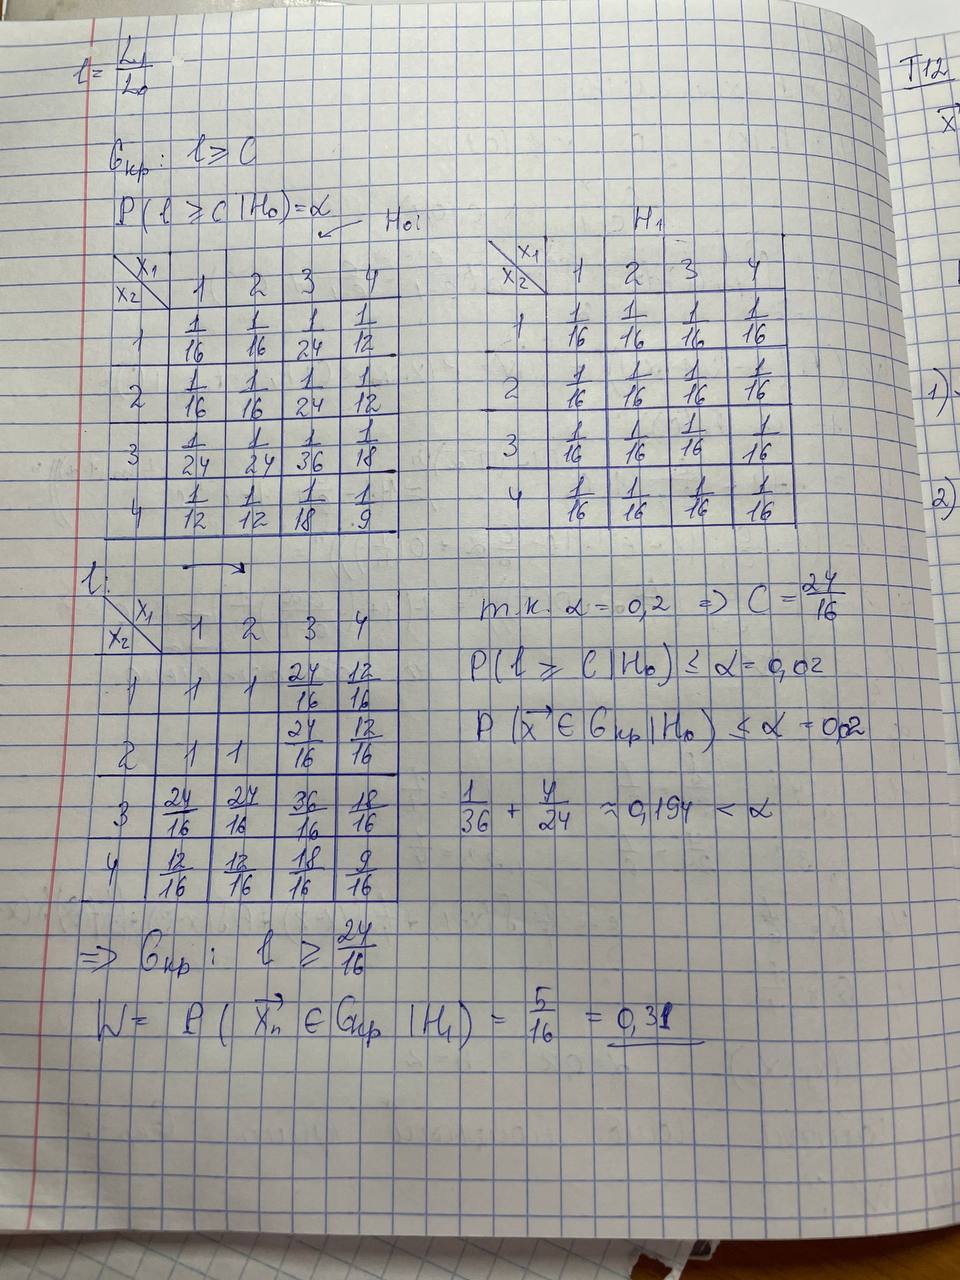 l = L₁/L₀
T12
x⃗
Gкр: l ≥ C
P(l ≥ C | H₀) = α
H₀:
H₁
x₁ x₂ 1 2 3 4
1 1/16 1/16 1/24 1/12
2 1/16 1/16 1/24 1/12
3 1/24 1/24 1/36 1/18
4 1/12 1/12 1/18 1/9
x₁ x₂ 1 2 3 4
1 1/16 1/16 1/16 1/16
2 1/16 1/16 1/16 1/16
3 1/16 1/16 1/16 1/16
4 1/16 1/16 1/16 1/16
1)
2)
l:
x₁ x₂ 1 2 3 4
1 1 1 24/16 12/16
2 1 1 24/16 12/16
3 24/16 24/16 36/16 18/16
4 12/16 12/16 18/16 9/16
т.к. α = 0,2 => C = 24/16
P(l ≥ C | H₀) ≤ α = 0,02
P(x⃗ ∈ Gкр | H₀) ≤ α = 0,2
1/36 + 4/24 ≈ 0,194 < α
=> Gкр: l ≥ 24/16
W = P(x⃗ₙ ∈ Gкр | H₁) = 5/16 = 0,31